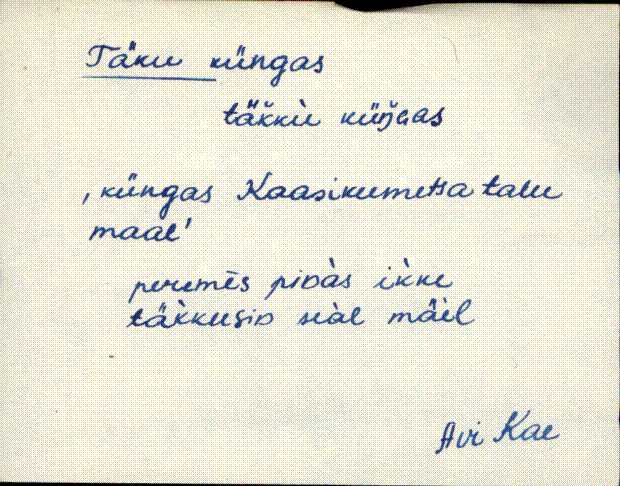 Täku küngas
täk̆kù küŋ̆ɢas
‚küngas Kaasikumetsa talu
maal'
peremēs piᴅàs ìkke
täk̀kusiᴅ seàl mäèl
Avi Kae